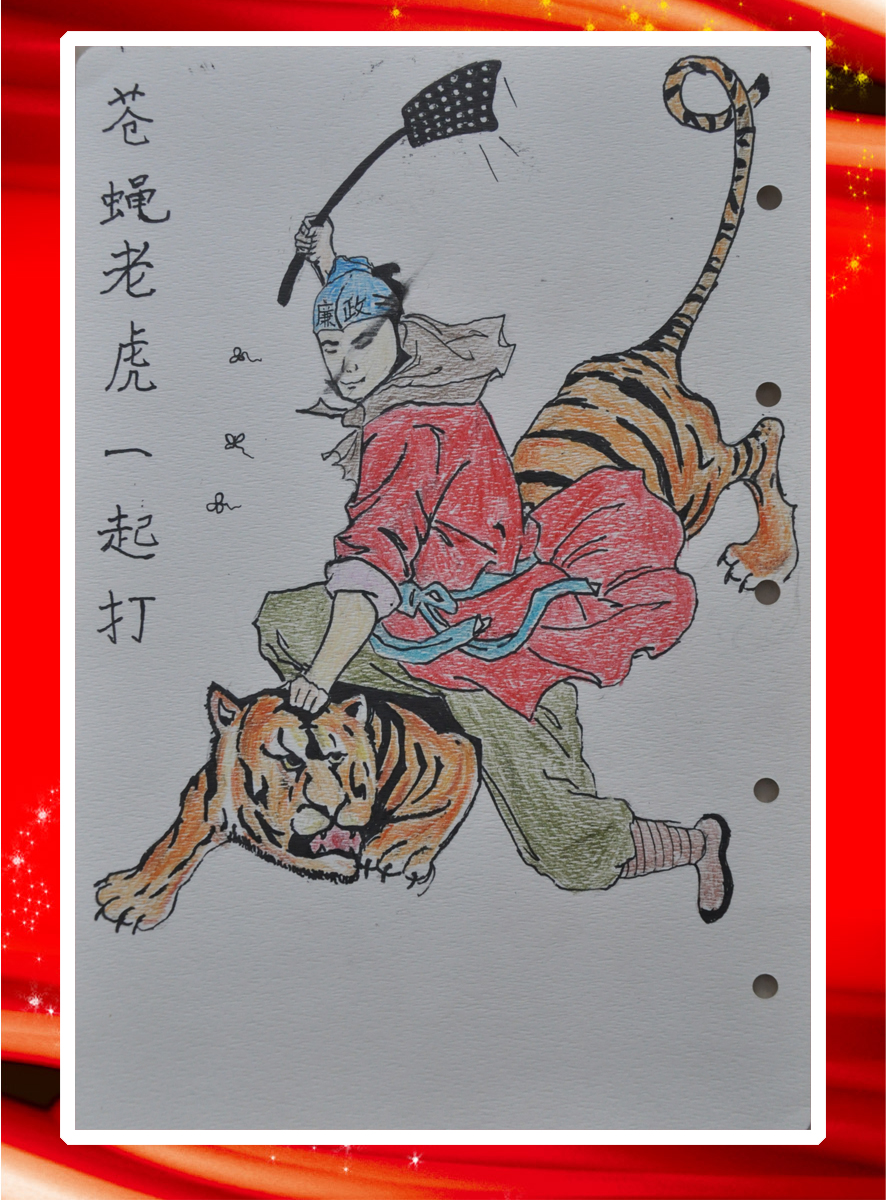 苍蝇老虎一起打
廉政